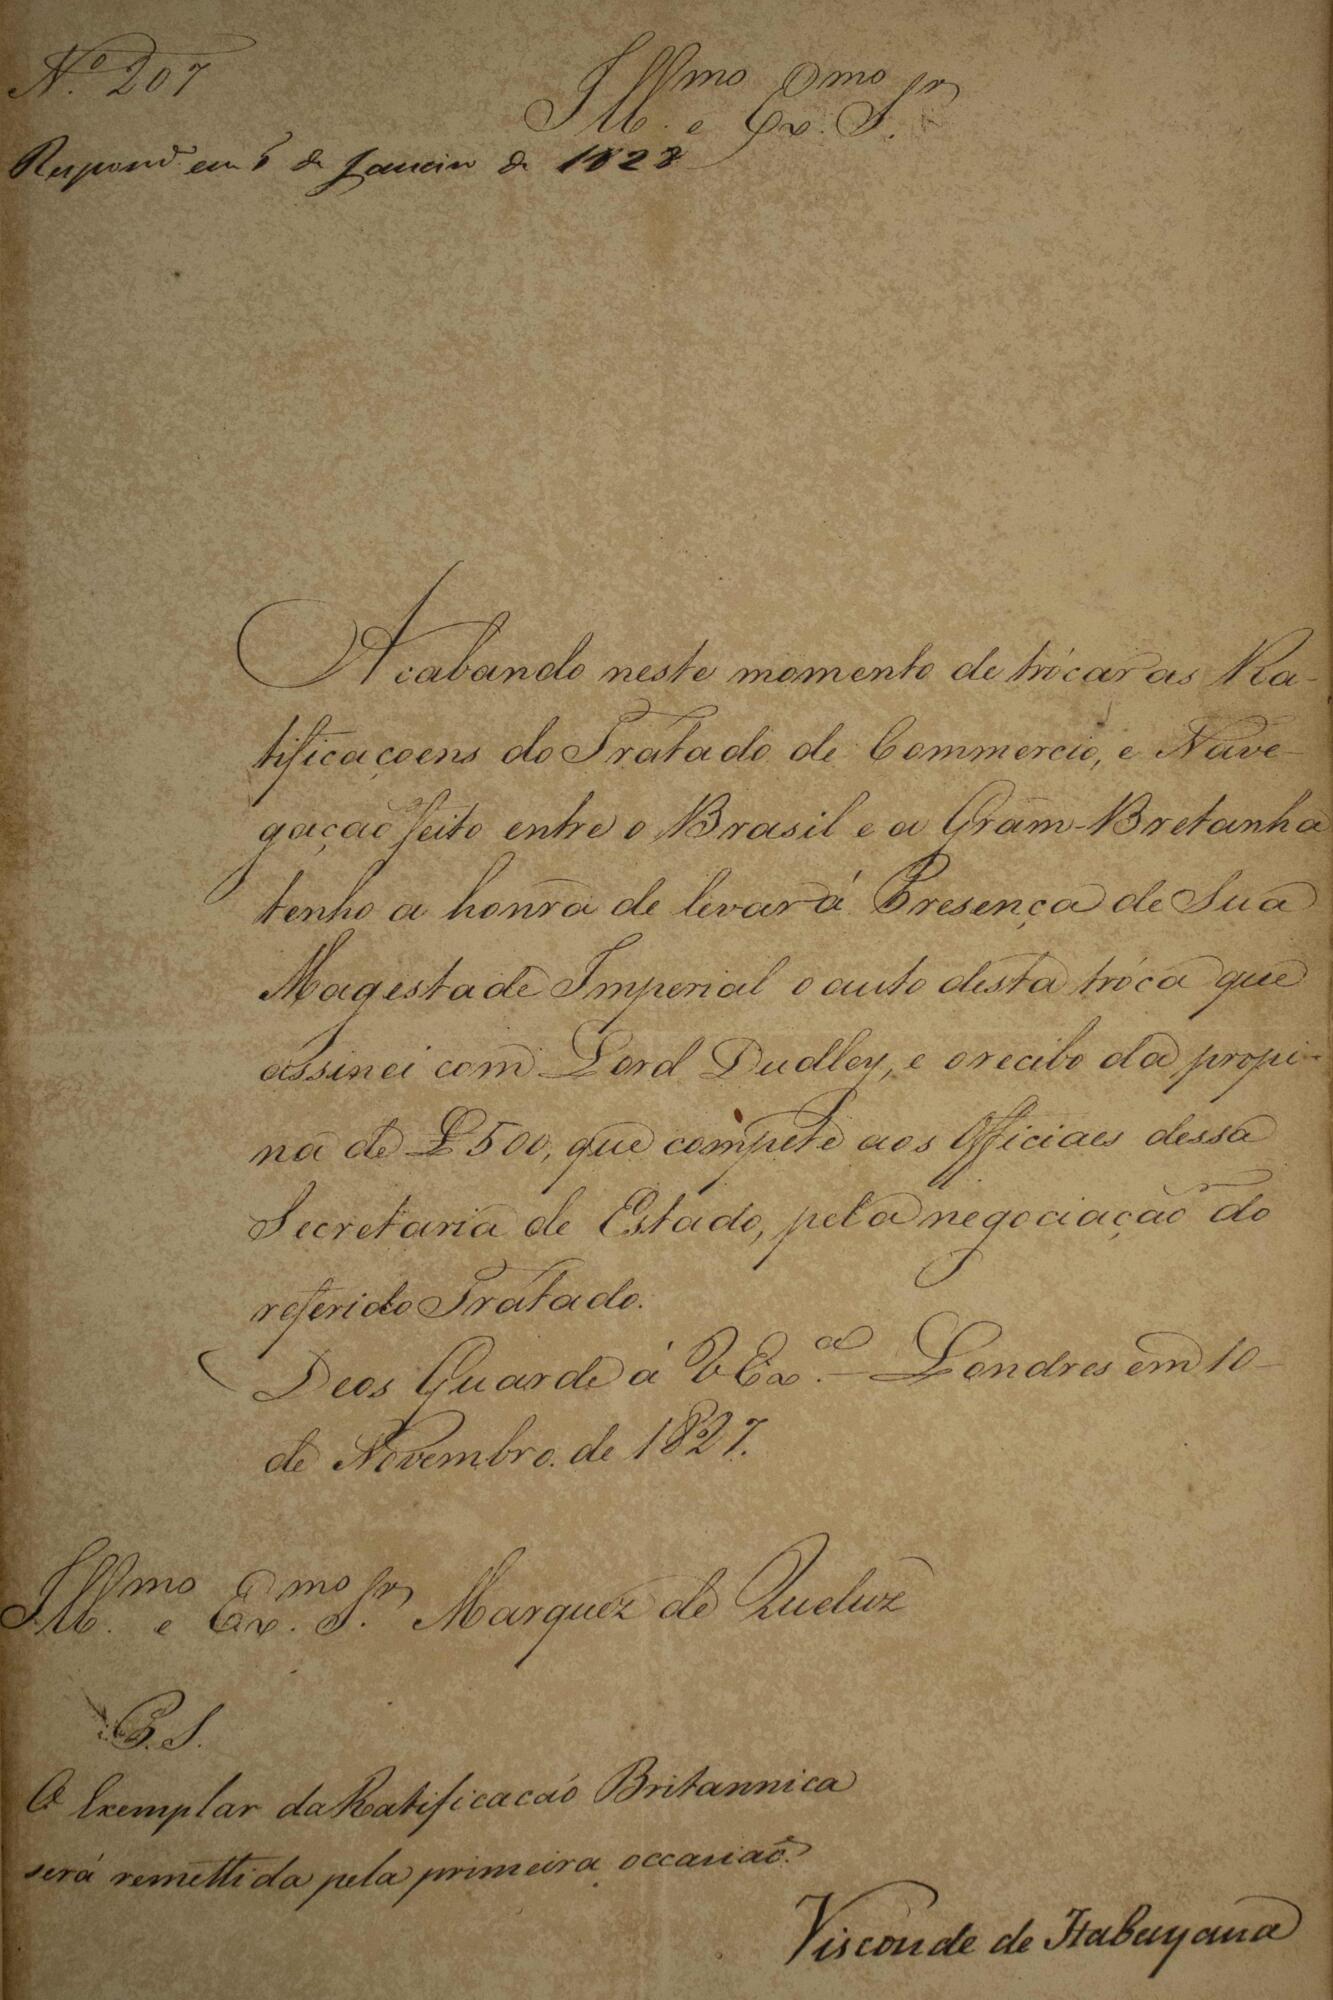 Nº 207
Illmo e Exmo Sr
Respond. em 6 de Janeiro de 1828
Acabando neste momento de trócar as Ra-
tificaçoens do Tratado de Commercio, e Nave-
gação feito entre o Brasil e a Gram-Bretanha
tenho a honra de levar á Presença de Sua
Magestade Imperial o auto desta tróca que
assinei com Lord Dudley, e o recibo da propi-
na de £500, que compete aos Officiaes dessa
Secretaria de Estado, pela negociação do
referido Tratado.
Deos Guarde á V Exa. - Londres em 10
de Novembro de 1827.
Illmo e Exmo Sr Marquez de Queluz
P.S.
O Exemplar da Ratificacaó Britannica
será remettida pela primeira occasiaõ.
Visconde de Itabayana